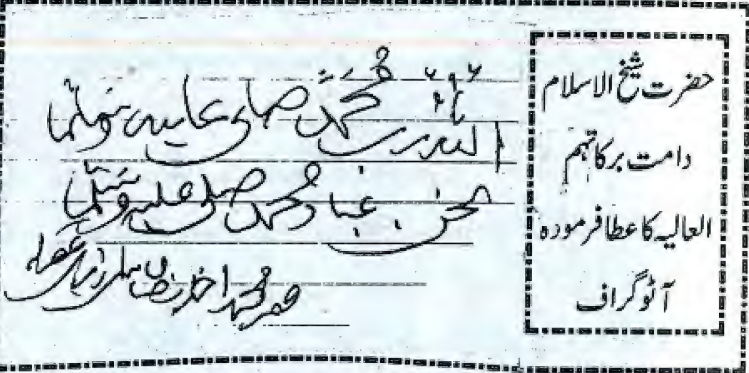 حضرت شیخ الاسلام
دامت برکاتہم
العالیہ کا عطا فرمودہ
آٹوگراف
۷۸۶
۹۲
اللہ رب محمد صلی علیہ وسلما
نحن عباد محمد صلی علیہ وسلما
محمد اختر